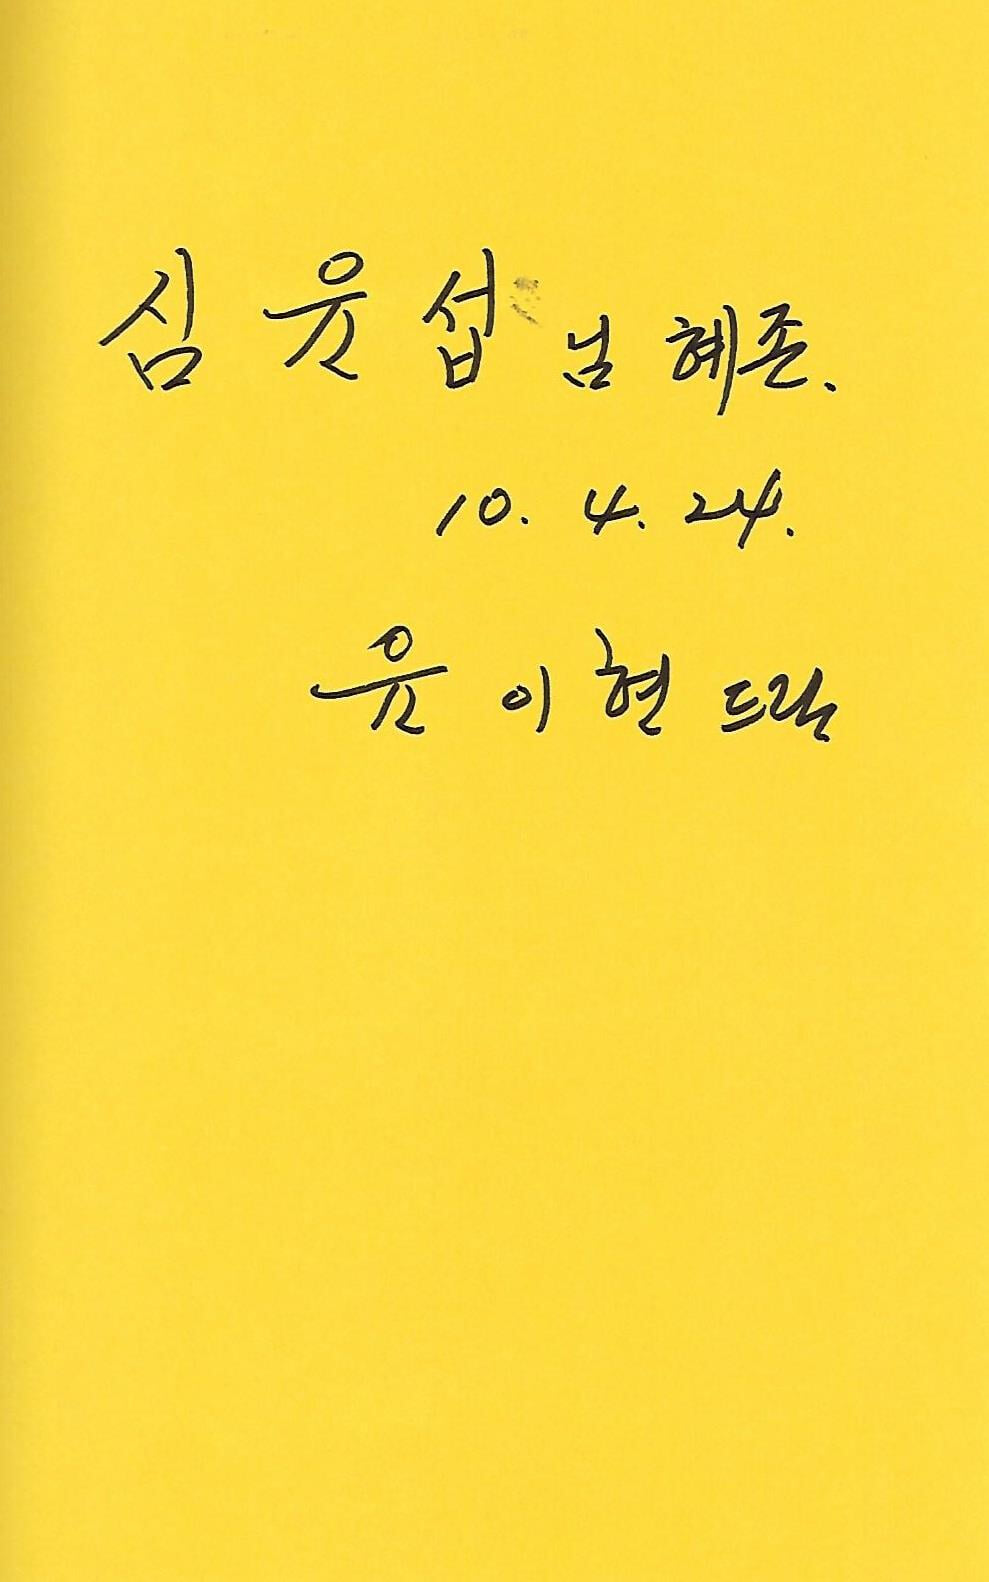 심윤섭님 혜존.
10. 4. 24.
윤이현 드림